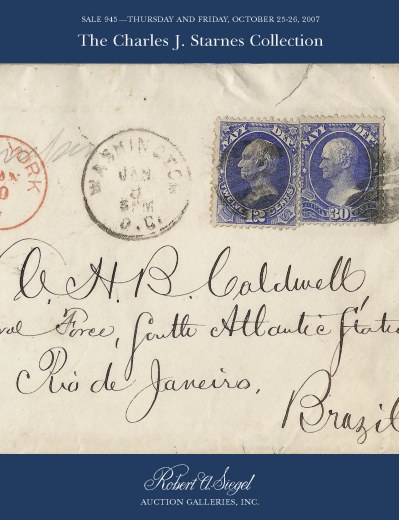 SALE 945—THURSDAY AND FRIDAY, OCTOBER 25-26, 2007
The Charles J. Starnes Collection
YORK
WASHINGTON
JAN
5PM
D.C.
NAVY DEP.
12
CENTS
NAVY DEP.
30
O. H. B. Caldwell,
Force, South Atlantic Statio
Rio de Janeiro,
Brazil
Robert A. Siegel
AUCTION GALLERIES, INC.